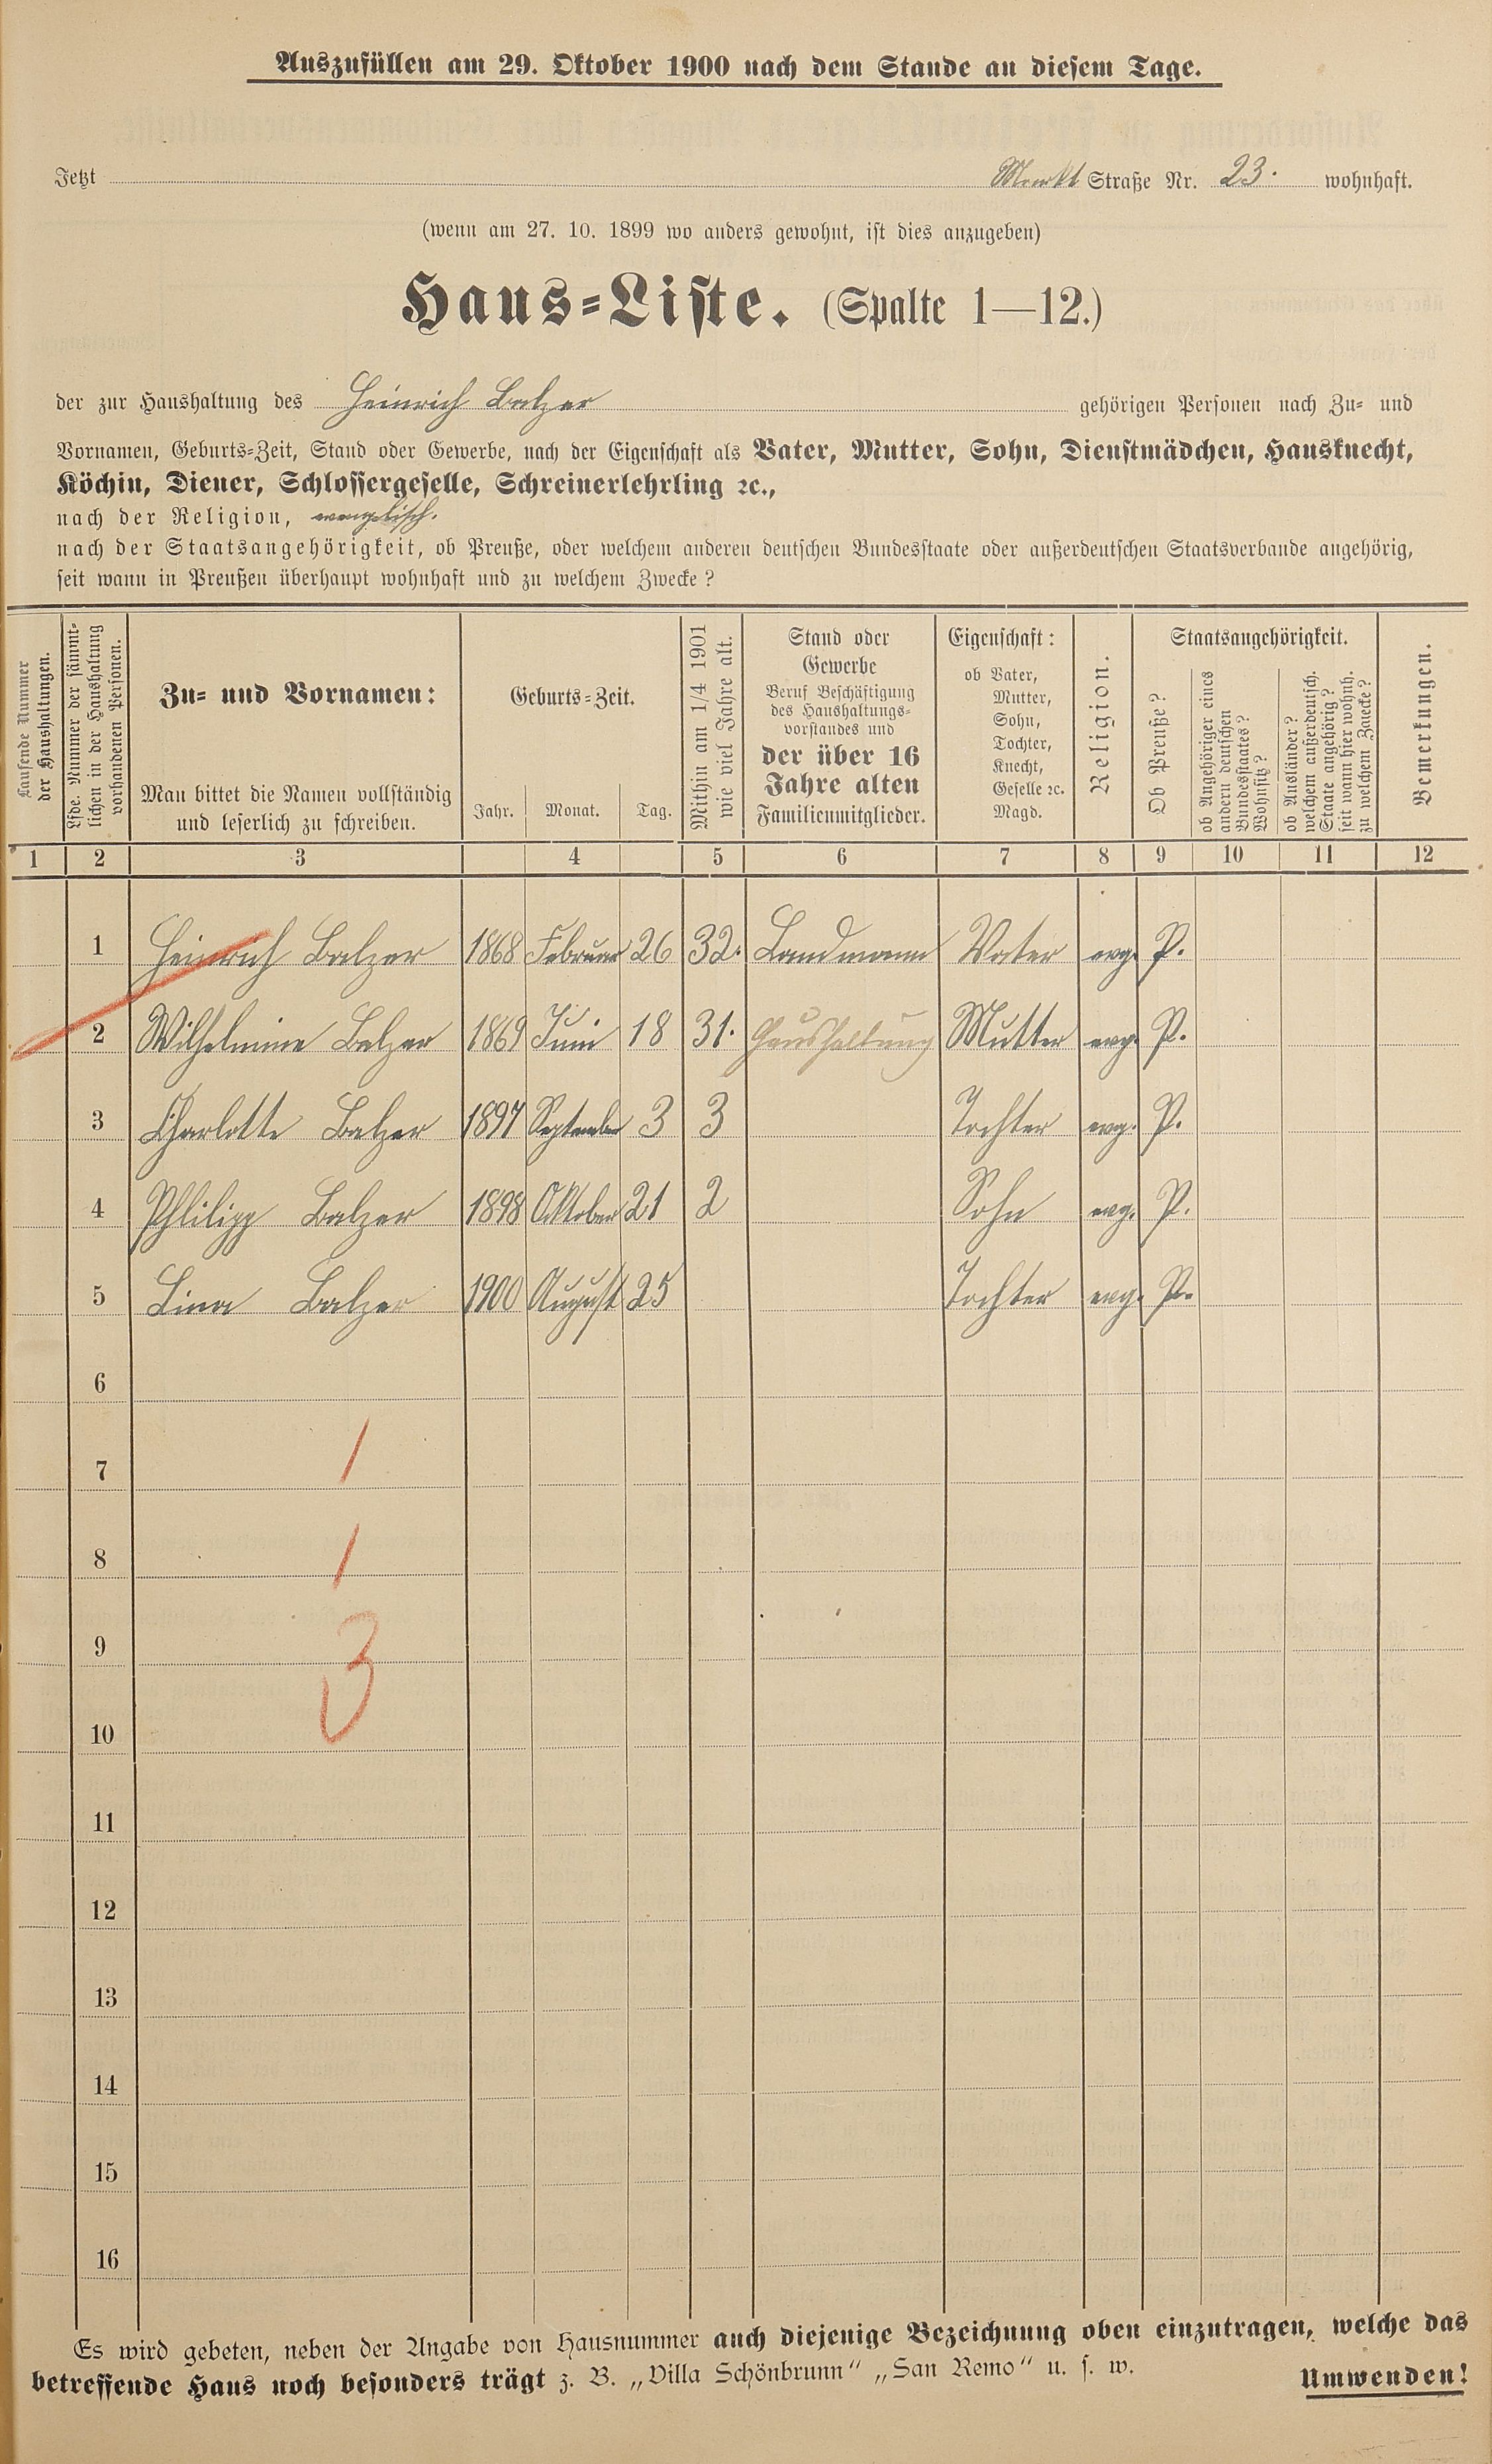 Auszufüllen am 29. Oktober 1900 nach dem Stande an diesem Tage.
Jetzt Markt Straße Nr. 23. wohnhaft.
(wenn am 27. 10. 1899 wo anders gewohnt, ist dies anzugeben)
Haus-Liste. (Spalte 1—12.)
der zur Haushaltung des Heinrich Balzer gehörigen Personen nach Zu- und
Vornamen, Geburts-Zeit, Stand oder Gewerbe, nach der Eigenschaft als Vater, Mutter, Sohn, Dienstmädchen, Hausknecht,
Köchin, Diener, Schlossergeselle, Schreinerlehrling ꝛc.,
nach der Religion, evangelisch.
nach der Staatsangehörigkeit, ob Preuße, oder welchem anderen deutschen Bundesstaate oder außerdeutschen Staatsverbande angehörig,
seit wann in Preußen überhaupt wohnhaft und zu welchem Zwecke?
Laufende Nummer
der Haushaltungen.
Lfde. Nummer der sämmt-
lichen in der Haushaltung
vorhandenen Personen.
Zu- und Vornamen:
Man bittet die Namen vollständig
und leserlich zu schreiben.
Geburts-Zeit.
Jahr. Monat. Tag.
Mithin am 1/4 1901
wie viel Jahre alt.
Stand oder
Gewerbe
Beruf Beschäftigung
des Haushaltungs-
vorstandes und
der über 16
Jahre alten
Familienmitglieder.
Eigenschaft:
ob Vater,
Mutter,
Sohn,
Tochter,
Knecht,
Geselle ꝛc.
Magd.
Religion.
Staatsangehörigkeit.
Ob Preuße?
ob Angehöriger eines
andern deutschen
Bundesstaates?
Wohnsitz?
ob Ausländer?
welchem außerdeutsch.
Staate angehörig?
seit wann hier wohnh.
zu welchem Zwecke?
Bemerkungen.
1 2 3 4 5 6 7 8 9 10 11 12
1 Heinrich Balzer 1868 Februar 26 32. Landmann Vater evg. P.
2 Wilhelmine Balzer 1869 Juni 18 31. Haushaltung Mutter evg. P.
3 Charlotte Balzer 1897 September 3 3 Tochter evg. P.
4 Phlilipp Balzer 1898 Oktober 21 2 Sohn evg. P.
5 Lina Balzer 1900 August 25 Tochter evg. P.
6
7 1
8 1
9 3
10
11
12
13
14
15
16
Es wird gebeten, neben der Angabe von Hausnummer auch diejenige Bezeichnung oben einzutragen, welche das
betreffende Haus noch besonders trägt z. B. „Villa Schönbrunn“ „San Remo“ u. s. w.
Umwenden!